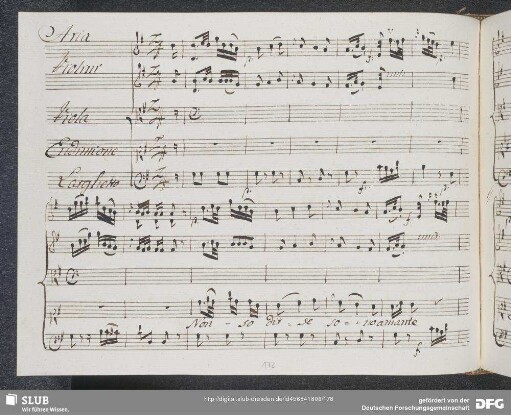 Aria
Violini
unis
Viola
Endimione
Larghetto
p.
f.
unis
Non - so dir - se so - no amante
f
178
SLUB
Wir führen Wissen.
http://digital.slub-dresden.de/
gefördert von der
Deutschen Forschungsgemeinschaft
DFG